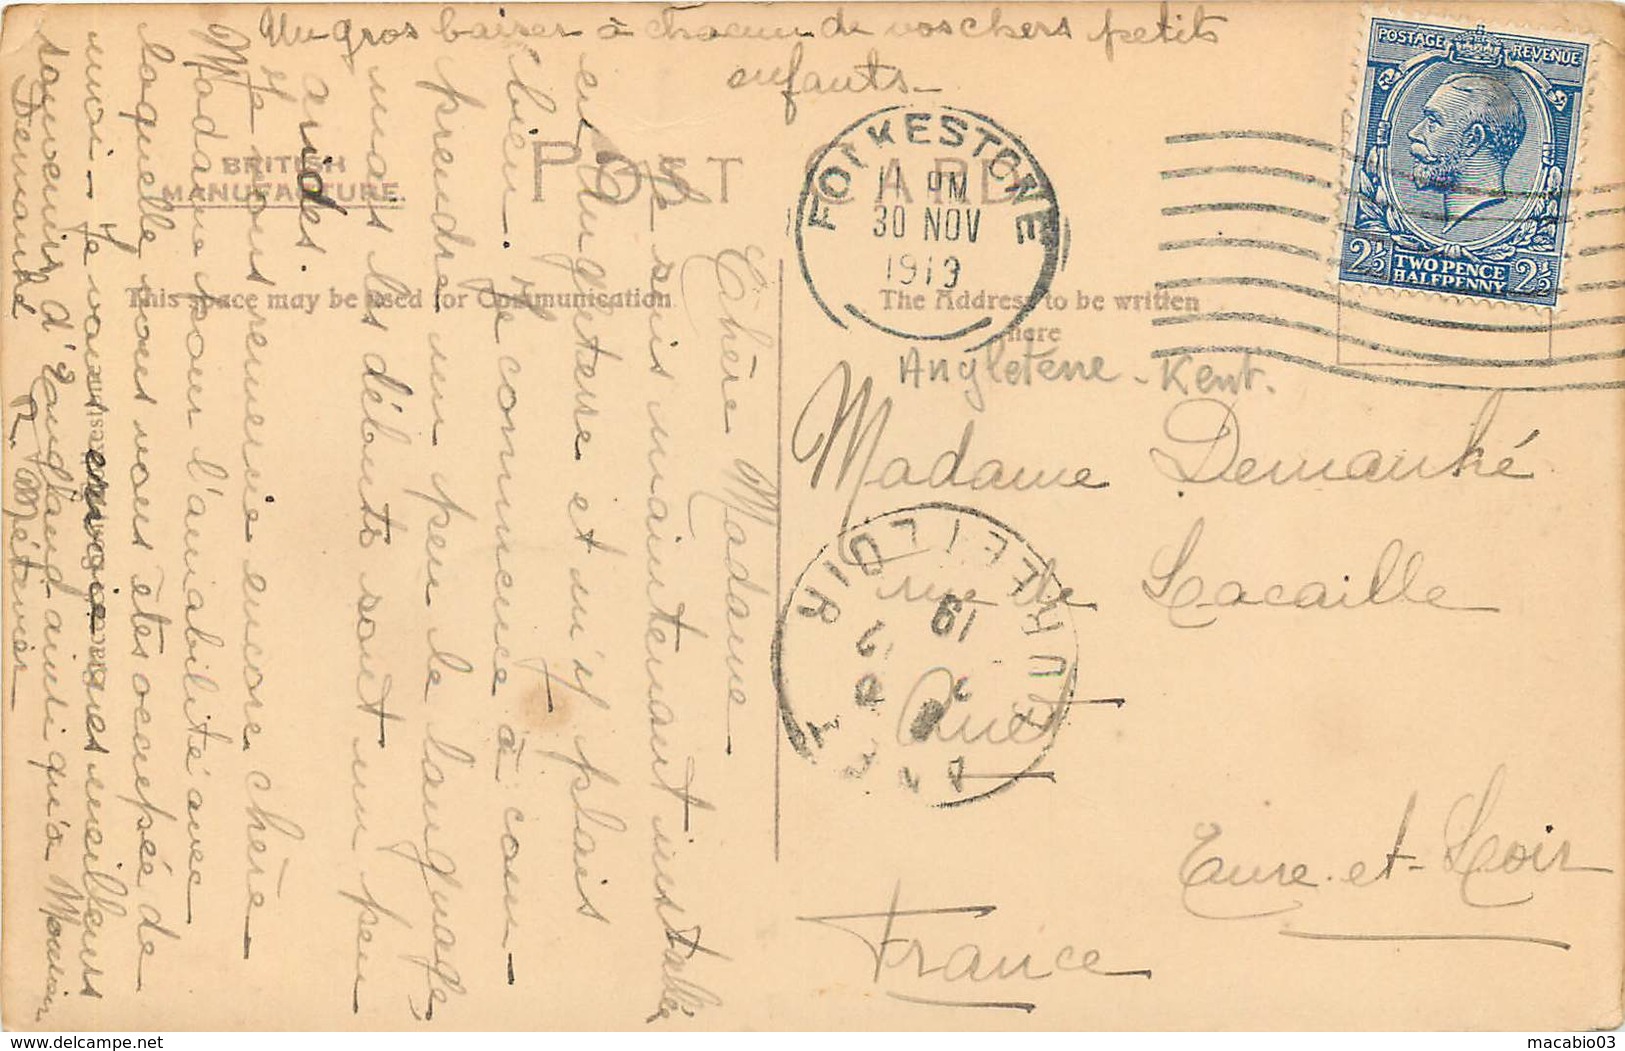 Un gros baiser à chacun de vos chers petits
enfants_
BRITISH
MANUFACTURE.
POST CARD
This space may be used for Communication
The Address to be written
here
Chère Madame
Je suis maintenant installée
en Angleterre et m'y plais
bien. Je commence à com-
prendre un peu le language,
mais les débuts sont un peu
arides.
Je vous remercie encore chère
Madame pour l'amabilité avec
laquelle vous vous êtes occupée de
moi_ Je vous envoie mes meilleurs
souvenirs d'England ainsi qu'à Monsieur
Demanhé
R. Métivier
FOLKESTONE
11 PM
30 NOV
1919
POSTAGE REVENUE
2½ TWO PENCE 2½
HALFPENNY
Angleterre - Kent.
Madame Demanhé
rue de Lacaille
Anet
Eure-et-Loir
France
EURE-ET-LOIR
ANET
19
macabio03